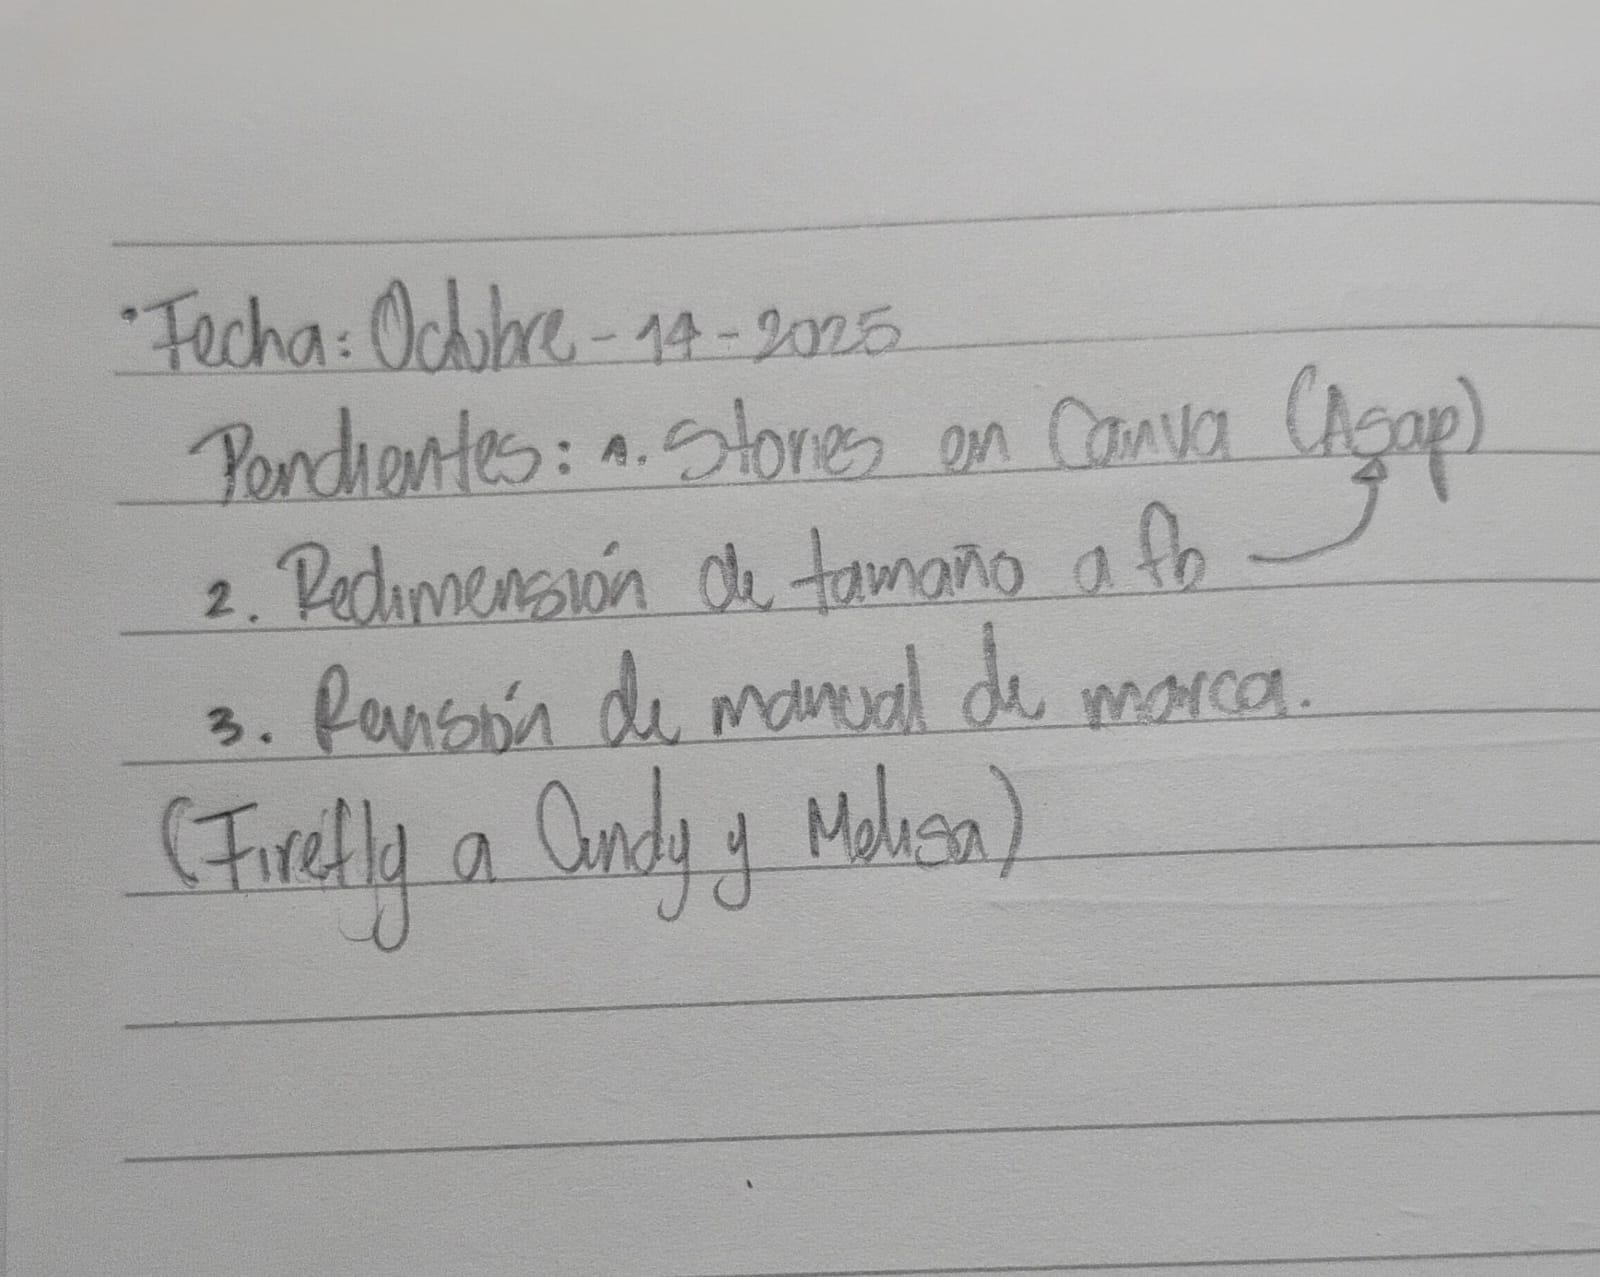 • Fecha: Octubre - 14 - 2025
Pendientes: 1. Stories en Canva (Asap)
2. Redimensión de tamaño a fb
3. Revisión de manual de marca.
(Firefly a Andy y Melisa)